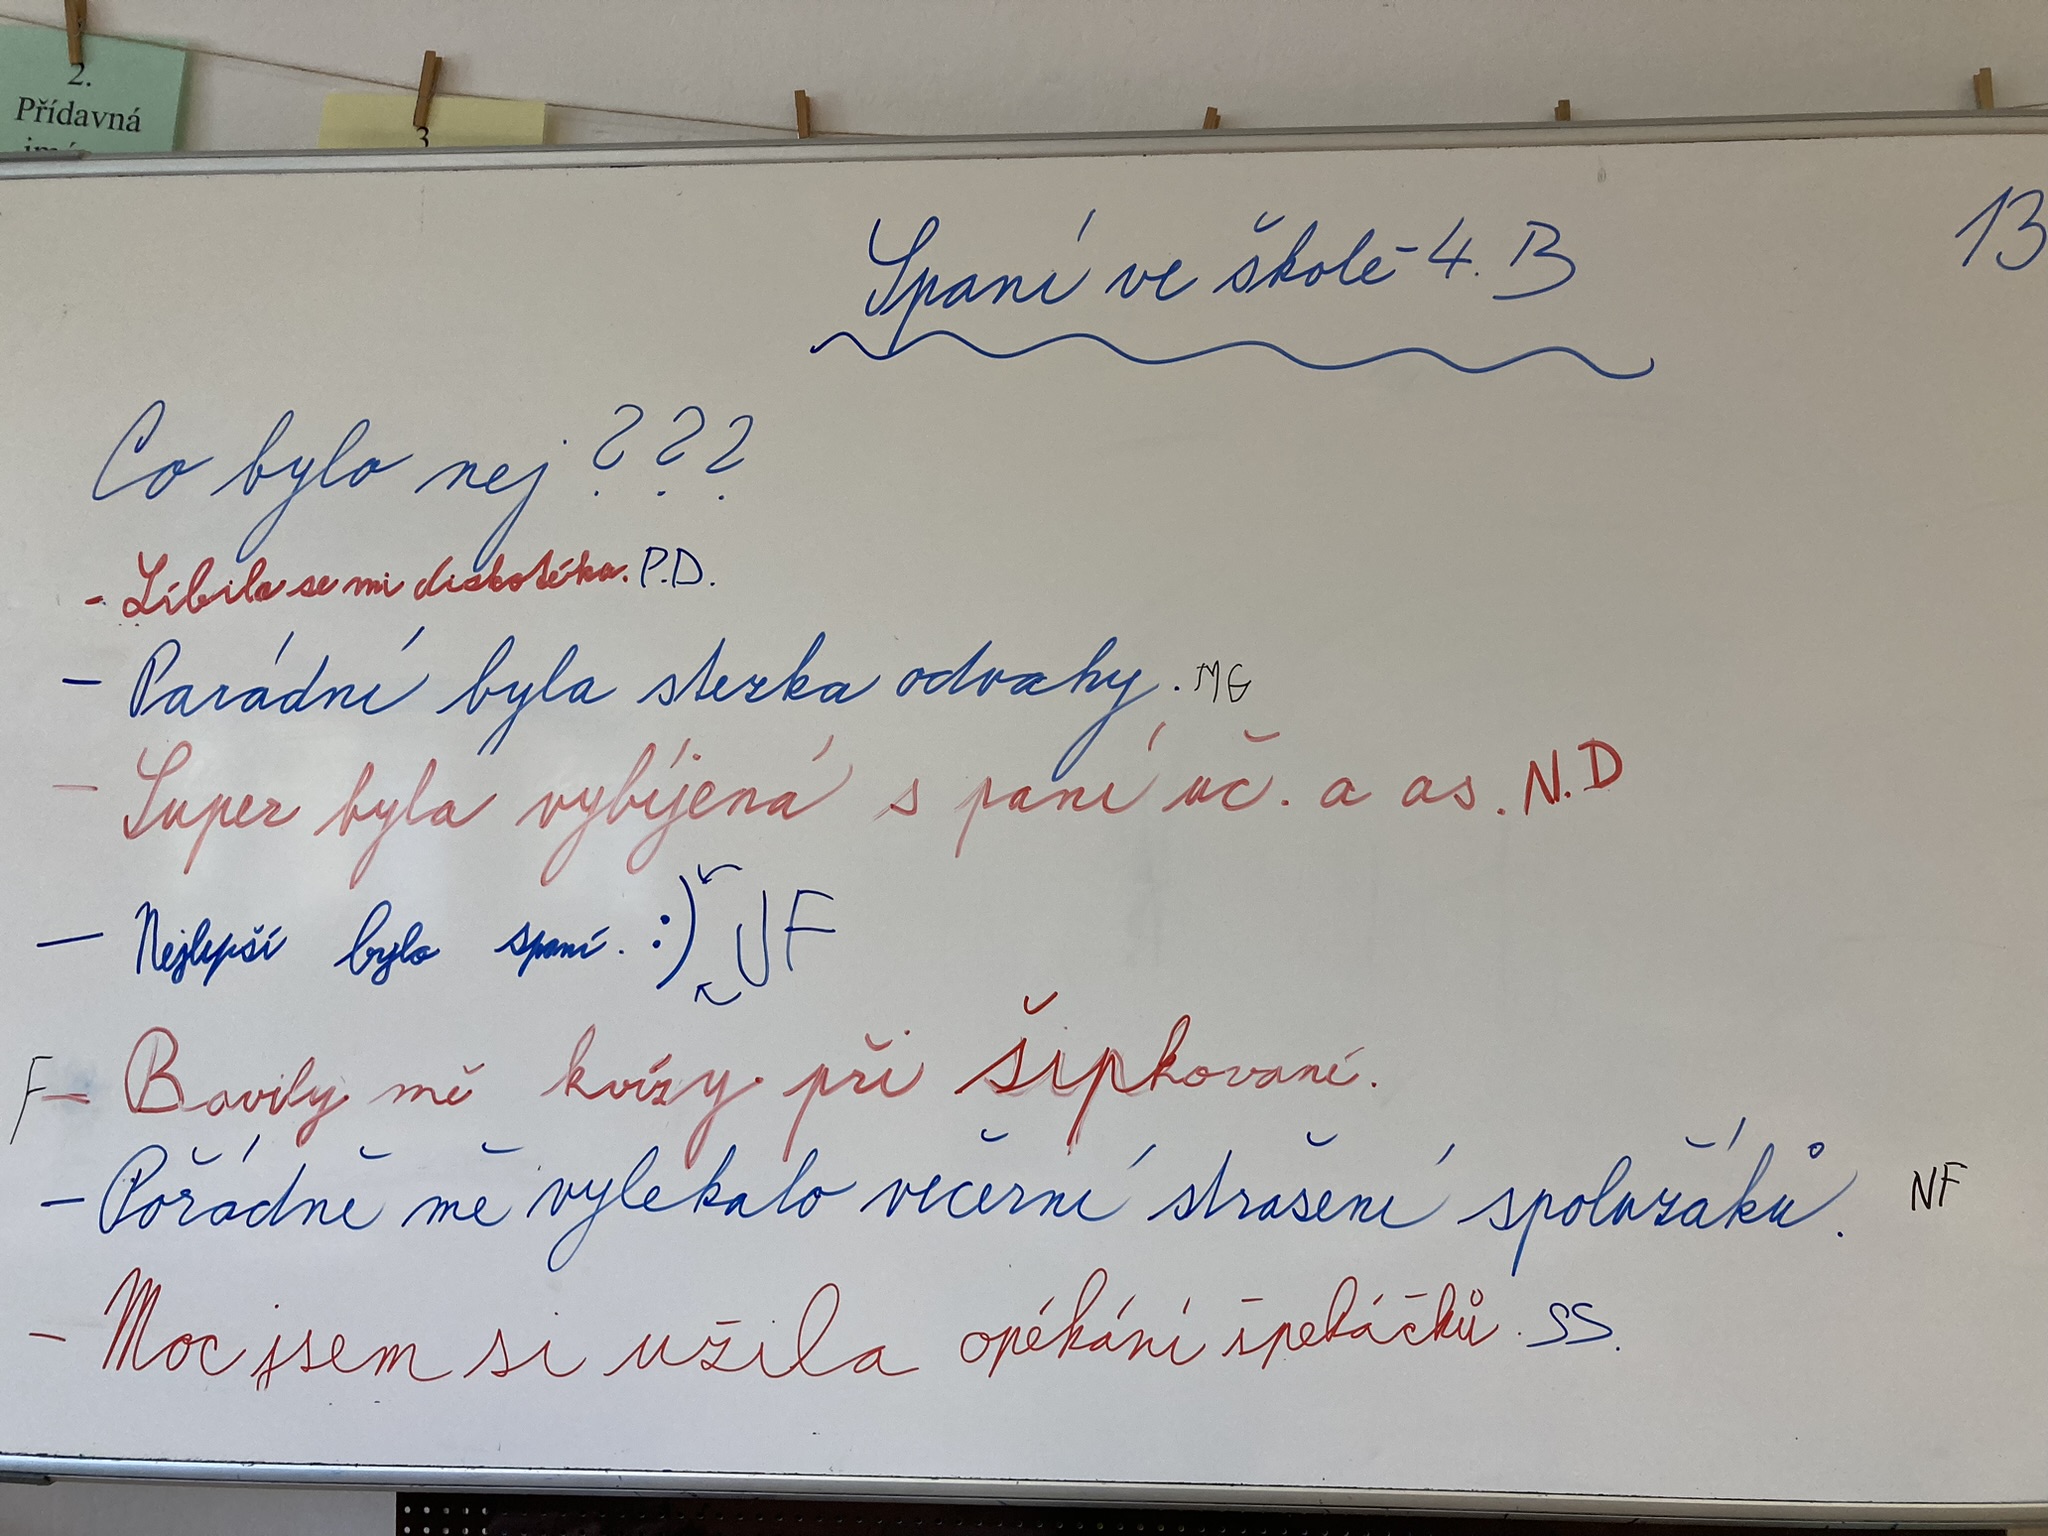 2.
Přídavná
3
Spaní ve škole - 4. B
13
Co bylo nej???
- Líbila se mi diskotéka. P.D.
- Parádní byla stezka odvahy. MG
- Super byla vybíjená s paní uč. a as. N.D
- Nejlepší bylo spaní. :) JF
F - Bavily mě kvízy při šipkovaní.
- Pořádně mě vylekalo večerní strašení spolužáků. NF
- Moc jsem si užila opékání špekáčků. SS.